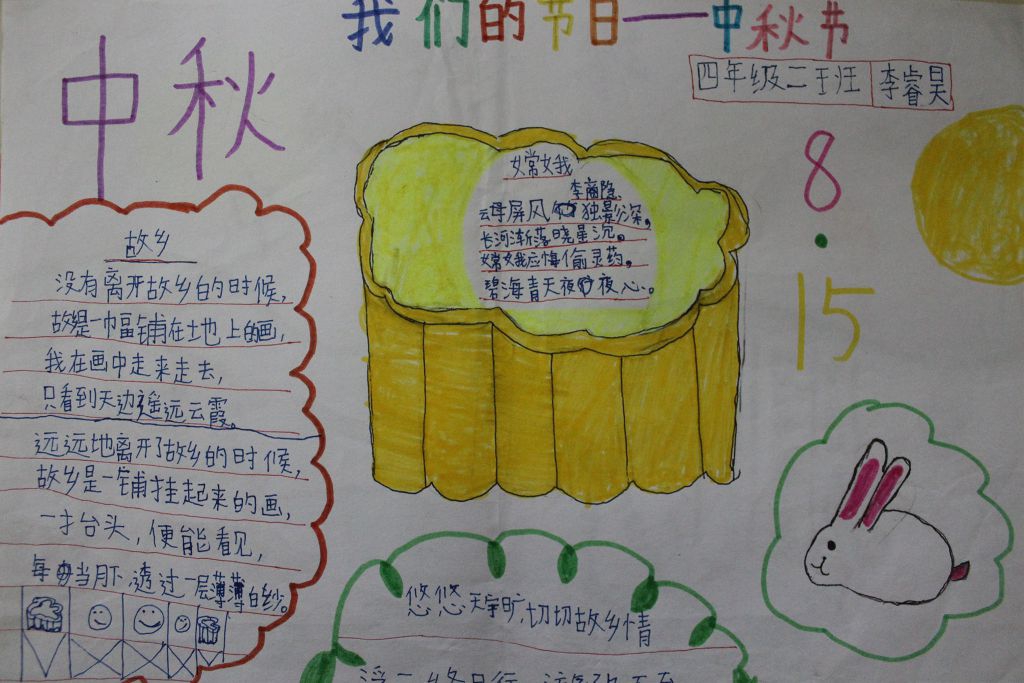 我们的节日——中秋节
四年级二班 李睿昊
中秋
8·15
嫦娥
李商隐
云母屏风 独影深,
长河渐落晓星沉。
嫦娥应悔偷灵药,
碧海青天夜夜心。
故乡
没有离开故乡的时候,
故是一巾畐铺在土也上的画,
我在画中走来走去,
只看到天边遥远云霞。
远远地离开了故乡的时候,
故乡是一铺挂起来的画,
一抬头,便能看见,
每当月下透过一层薄薄白纱。
悠悠天宇旷,切切故乡情